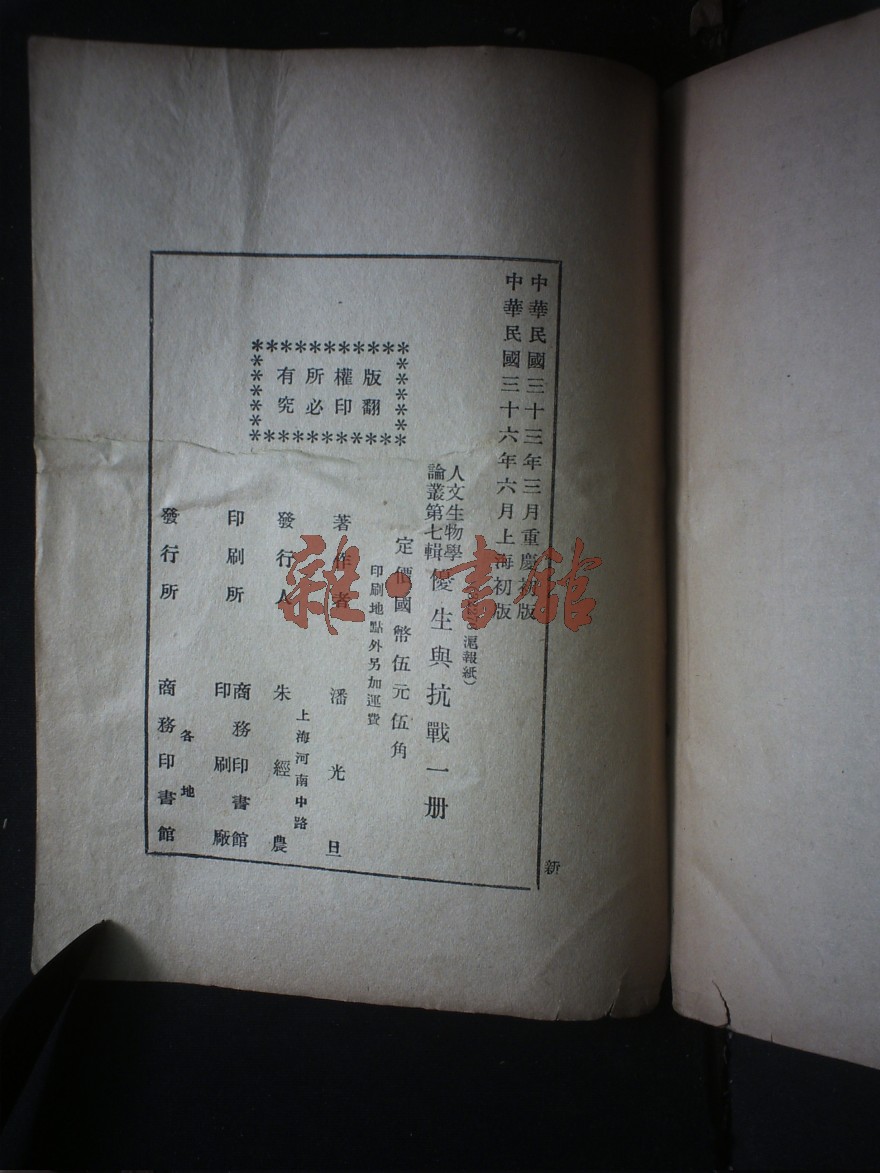 中華民國三十三年三月重慶初版
中華民國三十六年六月上海初版
人文生物學
論叢第七輯
優生與抗戰一册
滬報紙）
定價國幣伍元伍角
印刷地點外另加運費
版權所有
翻印必究
著作者 潘光旦
上海河南中路
發行人 朱經農
印刷所 商務印書館
印刷廠
各地
發行所 商務印書館
新
雜·書館